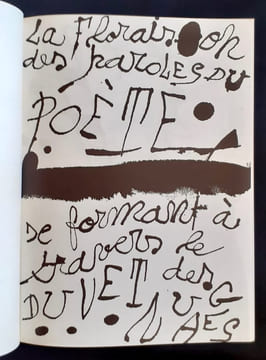 La floraison
des paroles du
POÈTE
se formant à
travers le
DUVET des
NUAGES